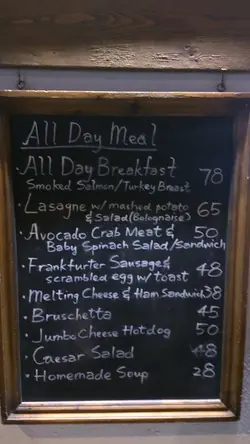 All Day Meal
· All Day Breakfast 78
Smoked Salmon/Turkey Breast
· Lasagne w/ mached potato 65
& Salad (Bolognaise)
· Avocado Crab Meat & 50
Baby Spinach Salad/Sandwich
· Frankfurter Sausage & 48
scrambled egg w/ toast
· Melting Cheese & Ham Sandwich 38
· Bruschetta 45
· Jumbo Cheese Hotdog 50
· Caesar Salad 48
· Homemade Soup 28